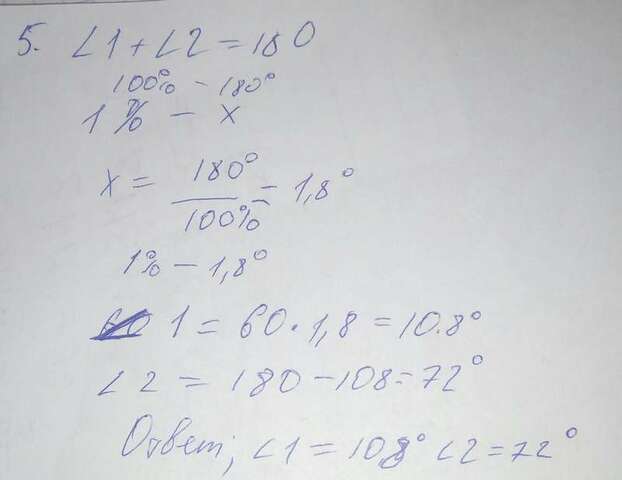 5. ∠1+∠2=180
100% - 180°
1% - x
x = 180°/100% = 1,8°
1% - 1,8°
1 = 60·1,8=10.8°
∠2 = 180-108=72°
Ответ; ∠1=108° ∠2=72°